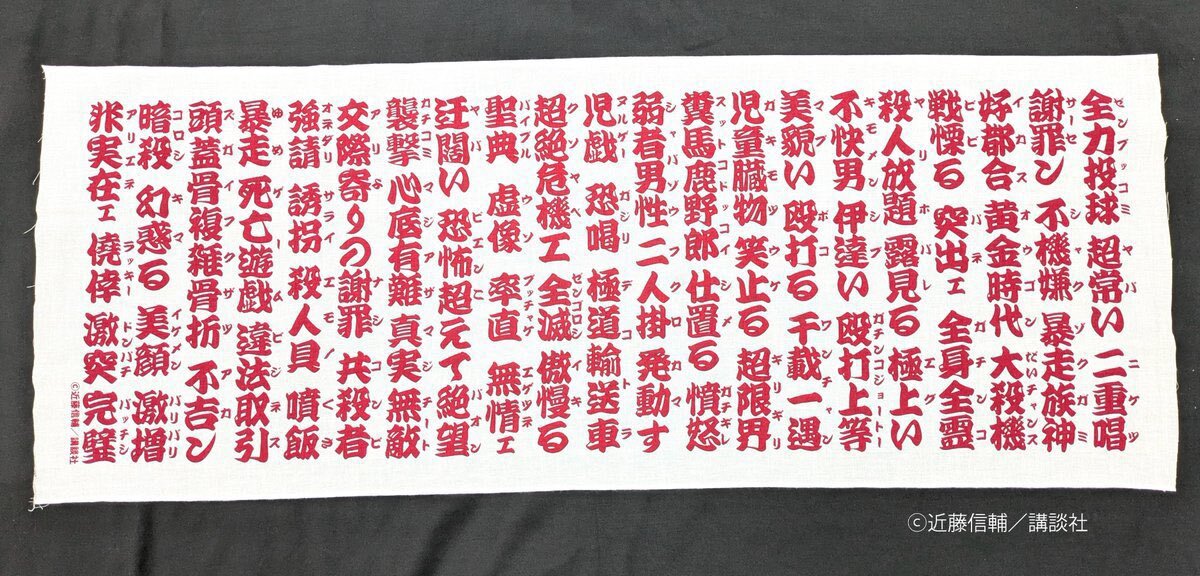 全力投球 超常い 二重唱
謝罪ン 不機嫌 暴走族神
好都合 黄金時代 大殺機
戦慄る 突出ェ 全身全霊
殺人放題 露見る 極上い
不快男 伊達い 殴打上等
美貌い 殴打る 千載一遇
児童臓物 笑止る 超限界
糞馬鹿野郎 仕置る 憤怒
弱者男性 二人掛 発動す
児戯 恐喝 極道輸送車
超絶危機ェ 全滅 傲慢る
聖典 虚像 率直 無情ェ
迂闊い 恐怖超えて絶望
襲撃 心底有難 真実無敵
交際寄りの謝罪 共殺者
強請 誘拐 殺人具 噴飯
暴走 死亡遊戯 違法取引
頭蓋骨複雑骨折 不吉ン
暗殺 幻惑る 美顔 激増
非実在ェ 僥倖 激突 完璧
©近藤信輔/講談社
©近藤信輔/講談社